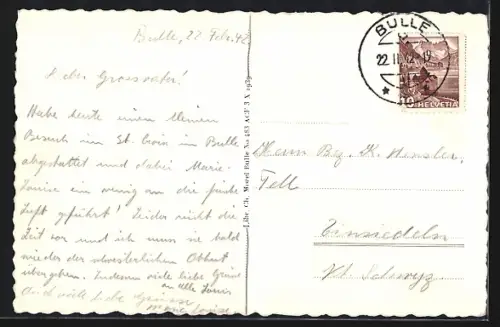 Bulle, 22 Feb. 42
Lieber Grossvater!
Habe heute einen kleinen
Besuch im St. Croix in Bulle
abgestattet und dabei Marie-
Louise ein wenig an die frische
Luft geführt! Leider reicht die
Zeit nur und ich muss sie bald
wieder der schwesterlichen Obhut
übergeben. Indessen viele liebe Grüsse
an alle Louis
Auch viele liebe Grüsse
Marie Louise
Libr. Ch. Morel Bulle No 483 ACF 3 X 1939
BULLE
22. II. 42-19
10 HELVETIA
Herrn Bez. K. Hensler,
Fell
Einsiedeln
Kt. Schwyz